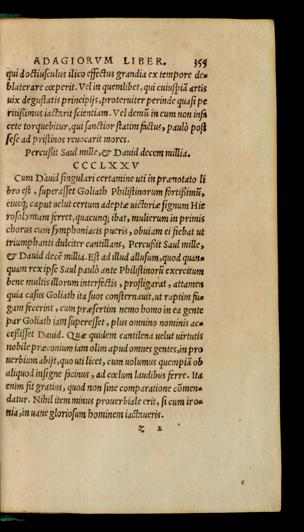 ADAGIORVM LIBER. 355
qui doctiusculus ilico effectus grandia ex tempore de-
blaterare cœperit. Vel in quemlibet, qui cuiuspiã artis
uix degustatis principijs, proteruiter perinde quasi pe
ritißimus iactarit scientiam. Vel demũ in eum non insi
cete torquebitur, qui sanctior statim factus, paulò post
sese ad pristinos reuocarit mores.
Percußit Saul mille, & Dauid decem millia.
CCCCLXXV
Cum Dauid singulari certamine uti in prænotato li
bro est, superasset Goliath Philistinorum fortißimũ,
eiusq; caput uelut certum adeptæ uictoriæ signum Hie
rosolymam ferret, quacunq; ibat, mulierum in primis
chorus cum symphoniacis pueris, obuiam ei fiebat ut
triumphanti dulciter cantillans, Percußit Saul mille,
& Dauid decẽ millia. Est ad illud allusum, quod quan-
quam rex ipse Saul paulò ante Philistinorũ exercitum
bene multis illorum interfectis, profligarat, attamen
quia casus Goliath ita suos consternauit, ut raptim fu-
gam fecerint, cum præsertim nemo homo in ea gente
par Goliath iam superesset, plus omnino nominis ac-
ceßisset Dauid. Quæ quidem cantilena uelut uirtutis
nobile præconium iam olim apud omnes gentes, in pro
uerbium abijt, quo uti licet, cum uolumus quempiã ob
aliquod insigne facinus, ad cœlum laudibus ferre. Ita
enim fit gratius, quod non sine comparatione cõmen-
datur. Nihil item minus prouerbiale erit, si cum iro-
nia, in uane gloriosum hominem iactueris.
z 2